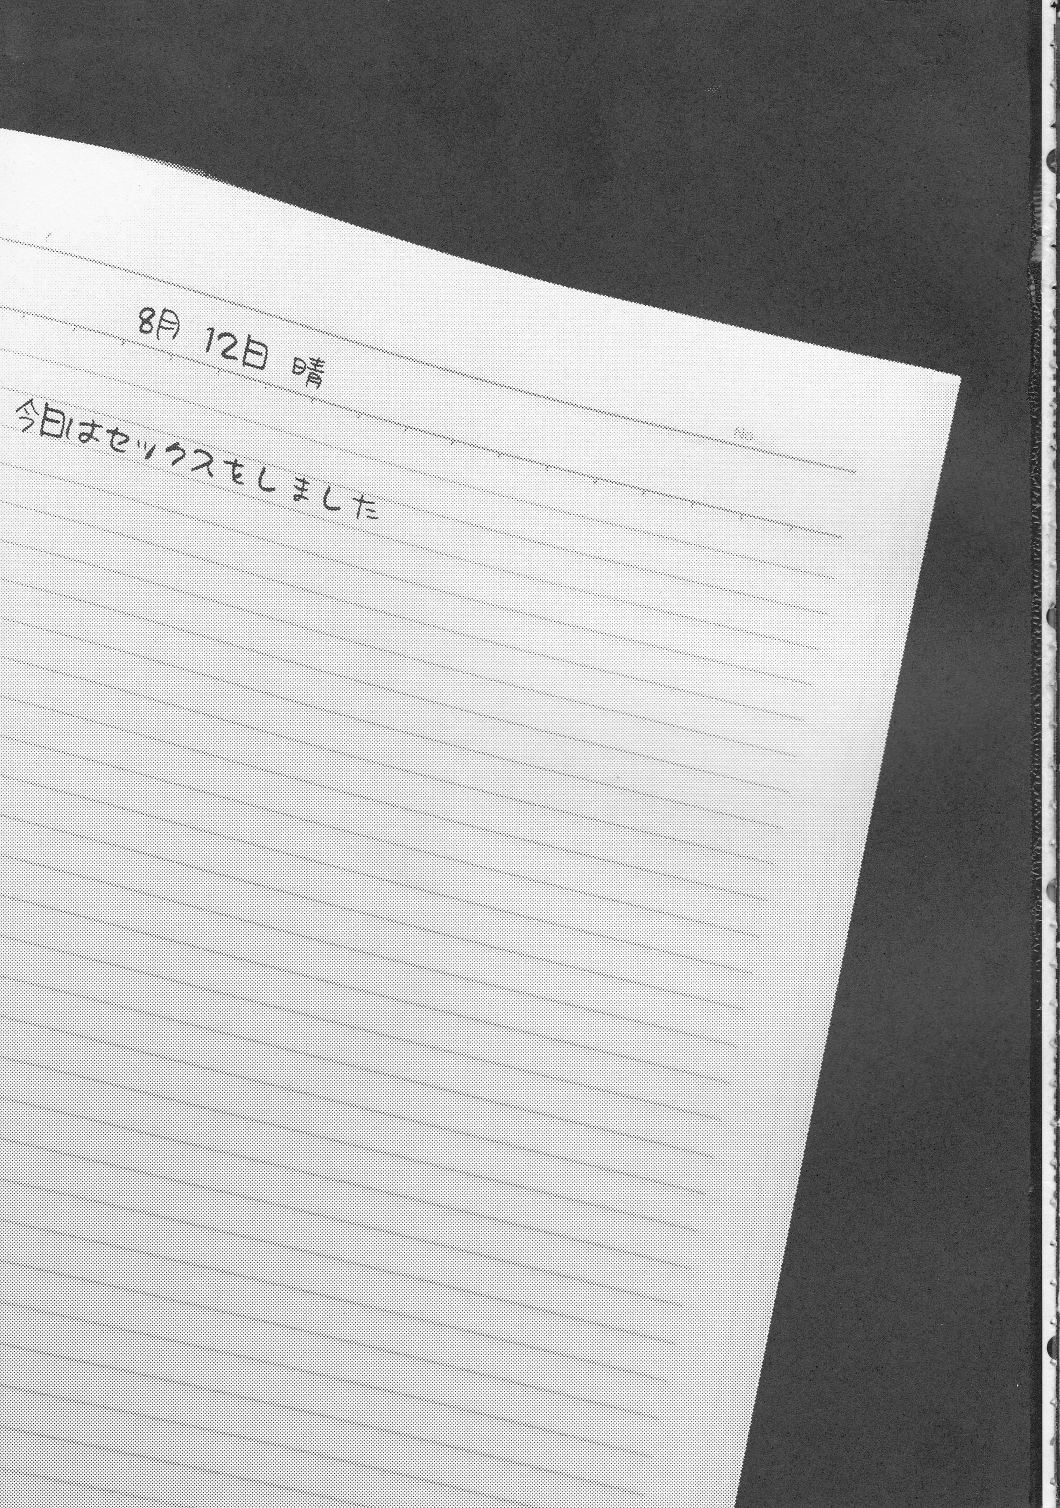 No.
8月 12日 晴
今日はセックスをしました